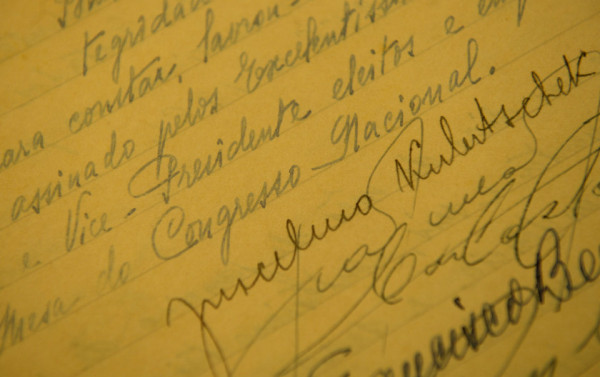 tegridade
para constar, lavrou-
assinado pelos Excelentíssim
e Vice-Presidente eleitos e emp
Mesa do Congresso Nacional.
Juscelino Kubitschek
Francisco Be